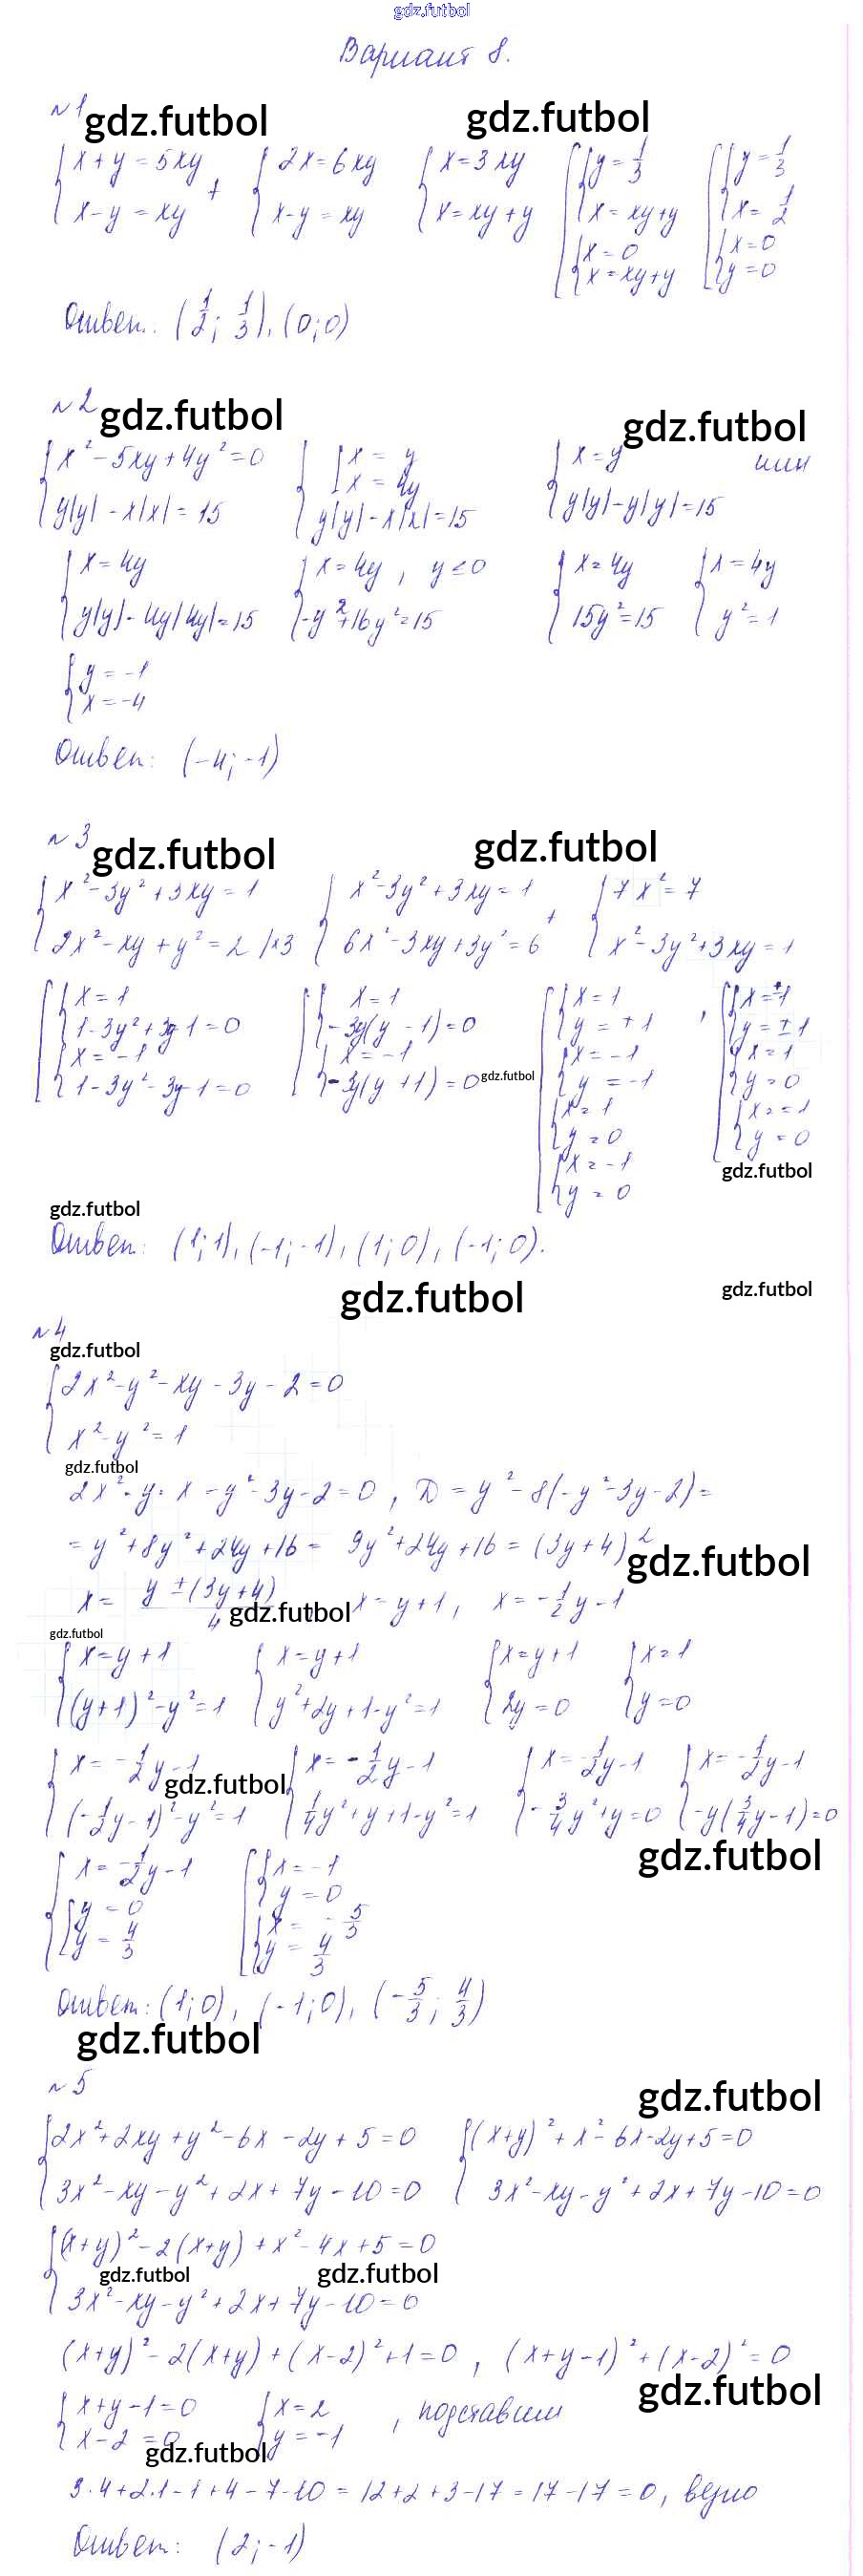 gdz.futbol
Вариант 8.
№1 gdz.futbol gdz.futbol
{ x+y=5xy ; x-y=xy + { 2x=6xy ; x-y=xy { x=3xy ; x=xy+y [ { y=1/3 ; x=xy+y { x=0 ; x=xy+y [ { y=1/3 ; x=1/2 { x=0 ; y=0
Ответ: (1/2; 1/3), (0;0)
№2 gdz.futbol gdz.futbol
{ x²-5xy+4y²=0 ; y|y|-x|x|=15 { [ x=y ; x=4y ; y|y|-x|x|=15 { x=y ; y|y|-y|y|=15 или
{ x=4y ; y|y|-4y|4y|=15 { x=4y, y≤0 ; -y²+16y²=15 { x=4y ; 15y²=15 { x=4y ; y²=1
{ y=-1 ; x=-4
Ответ: (-4;-1)
№3 gdz.futbol gdz.futbol
{ x²-3y²+3xy=1 ; 2x²-xy+y²=2 |×3 { x²-3y²+3xy=1 ; 6x²-3xy+3y²=6 + { 7x²=7 ; x²-3y²+3xy=1
[ { x=1 ; 1-3y²+3y-1=0 { x=-1 ; 1-3y²-3y-1=0 [ { x=1 ; -3y(y-1)=0 { x=-1 ; -3y(y+1)=0 gdz.futbol [ { x=1 ; y=+1 { x=-1 ; y=-1 { x=1 ; y=0 { x=-1 ; y=0 , [ { x=±1 ; y=±1 { x=1 ; y=0 { x=-1 ; y=0
gdz.futbol
gdz.futbol
Ответ: (1;1), (-1;-1), (1;0), (-1;0).
gdz.futbol gdz.futbol
№4
gdz.futbol
{ 2x²-y²-xy-3y-2=0 ; x²-y²=1
gdz.futbol
2x²-y·x-y²-3y-2=0, D=y²-8(-y²-3y-2)=
=y²+8y²+24y+16= 9y²+24y+16=(3y+4)² gdz.futbol
x= y±(3y+4)/4 gdz.futbol x=y+1, x=-1/2y-1
gdz.futbol
{ x=y+1 ; (y+1)²-y²=1 { x=y+1 ; y²+2y+1-y²=1 { x=y+1 ; 2y=0 { x=1 ; y=0
{ x=-1/2y-1 ; (-1/2y-1)²-y²=1 gdz.futbol { x=-1/2y-1 ; 1/4y²+y+1-y²=1 { x=-1/2y-1 ; -3/4y²+y=0 { x=-1/2y-1 ; -y(3/4y-1)=0
gdz.futbol
{ x=-1/2y-1 ; [ y=0 ; y=4/3 [ { x=-1 ; y=0 { x=-5/3 ; y=4/3
Ответ: (1;0), (-1;0), (-5/3; 4/3)
gdz.futbol
№5 gdz.futbol
{ 2x²+2xy+y²-6x-2y+5=0 ; 3x²-xy-y²+2x+7y-10=0 { (x+y)²+x²-6x-2y+5=0 ; 3x²-xy-y²+2x+7y-10=0
{ (x+y)²-2(x+y)+x²-4x+5=0 ; 3x²-xy-y²+2x+7y-10=0
gdz.futbol gdz.futbol
(x+y)²-2(x+y)+(x-2)²+1=0, (x+y-1)²+(x-2)²=0
gdz.futbol
{ x+y-1=0 ; x-2=0 { x=2 ; y=-1 , подставим
gdz.futbol
3·4+2·1-1+4-7-10=12+2+3-17=17-17=0, верно
Ответ: (2;-1)